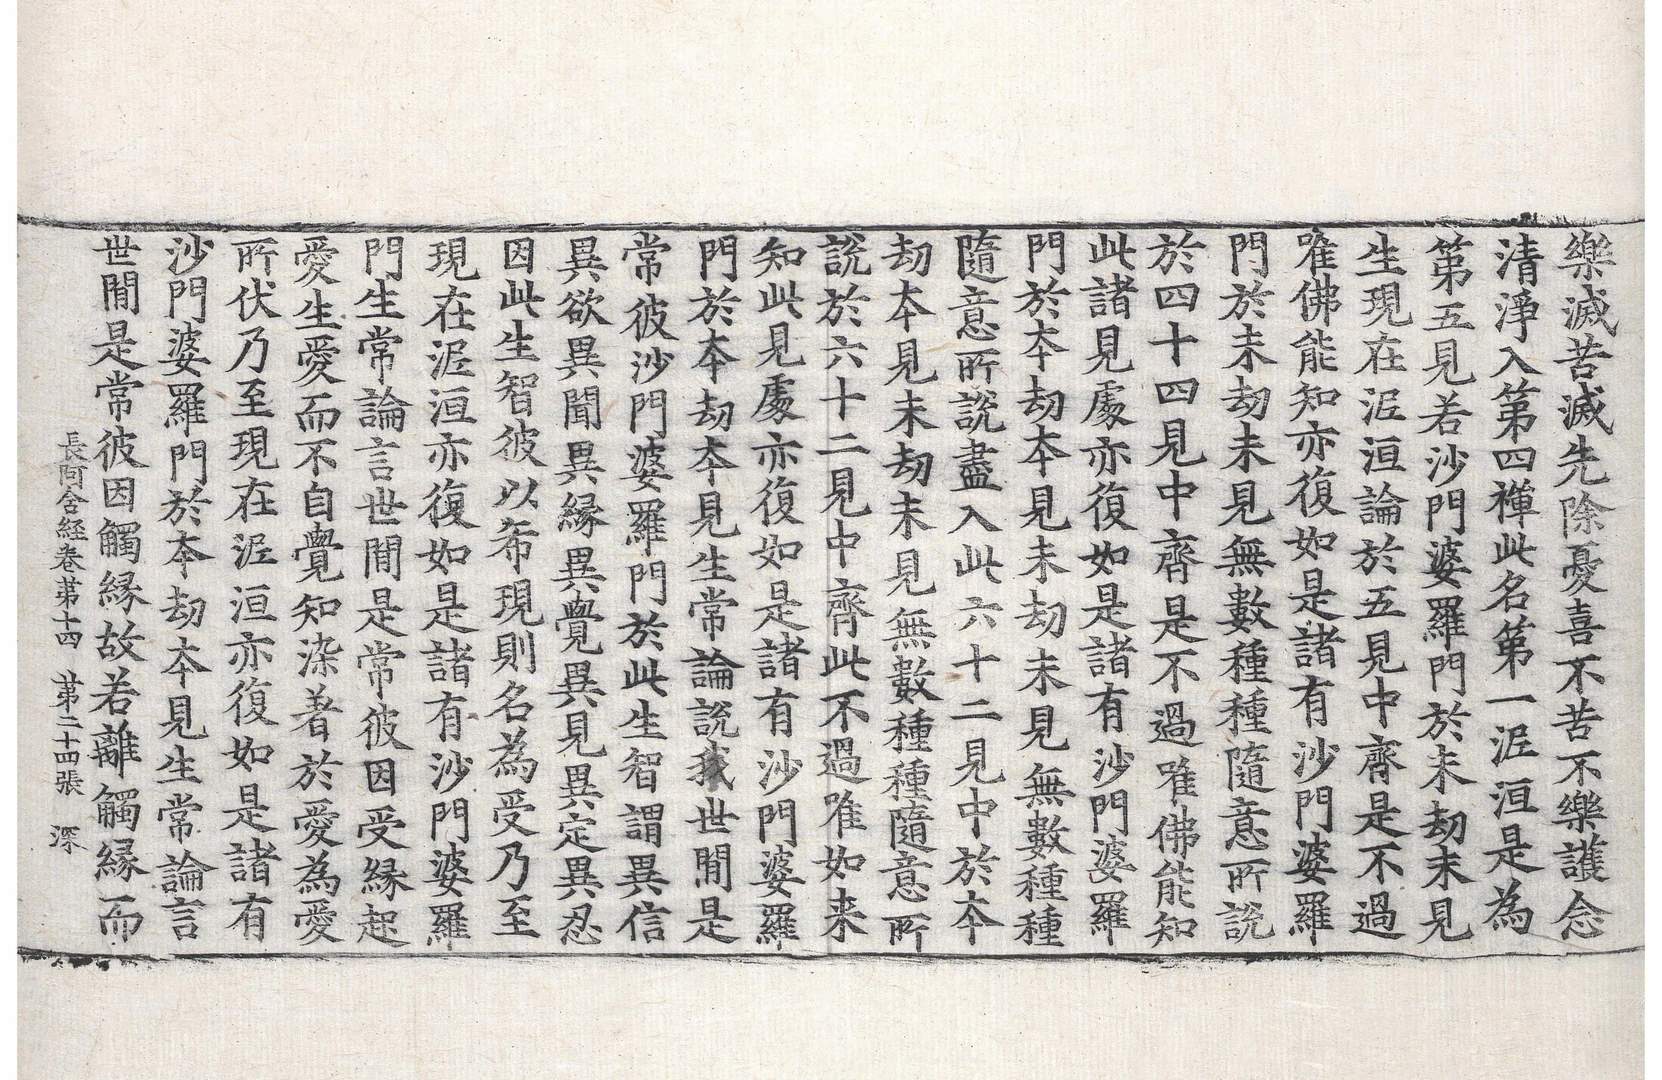 樂滅苦滅先除憂喜不苦不樂護念
清淨入第四禪此名第一泥洹是為
第五見若沙門婆羅門於末劫末見
生現在泥洹論於五見中齊是不過
唯佛能知亦復如是諸有沙門婆羅
門於未劫未見無數種種隨意所說
於四十四見中齊是不過唯佛能知
此諸見處亦復如是諸有沙門婆羅
門於本劫本見未劫未見無數種種
隨意所說盡入此六十二見中於本
劫本見未劫未見無數種種隨意所
說於六十二見中齊此不過唯如来
知此見處亦復如是諸有沙門婆羅
門於本劫本見生常論說我世間是
常彼沙門婆羅門於此生智謂異信
異欲異聞異緣異覺異見異定異忍
因此生智彼以希現則名為受乃至
現在泥洹亦復如是諸有沙門婆羅
門生常論言世間是常彼因受緣起
愛生愛而不自覺知染著於愛為愛
所伏乃至現在泥洹亦復如是諸有
沙門婆羅門於本劫本見生常論言
世間是常彼因觸緣故若離觸緣而
長阿含経卷第十四 第二十四張 深